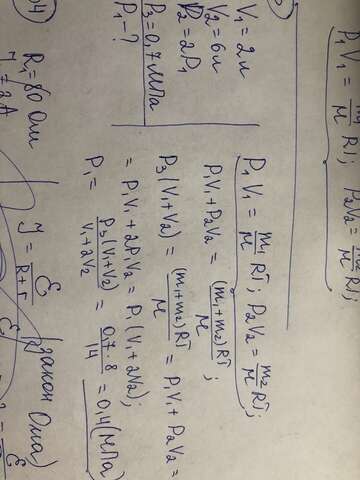 P₁V₁ = m₁/M RT; P₂V₂ = m₂/M RT;
V₁ = 2л
V₂ = 6л
P₂ = 2P₁
P₃ = 0,7 МПа
P₁ - ?
P₁V₁ = m₁/M RT; P₂V₂ = m₂/M RT;
P₁V₁ + P₂V₂ = (m₁+m₂)RT/M;
P₃(V₁+V₂) = (m₁+m₂)RT/M = P₁V₁ + P₂V₂ =
= P₁V₁ + 2P₁V₂ = P₁(V₁ + 2V₂);
P₁ = P₃(V₁+V₂)/V₁+2V₂ = 0,7·8/14 = 0,4 (МПа)
04)
R₁ = 80 Ом
J = ℰ/R+r (закон Ома)